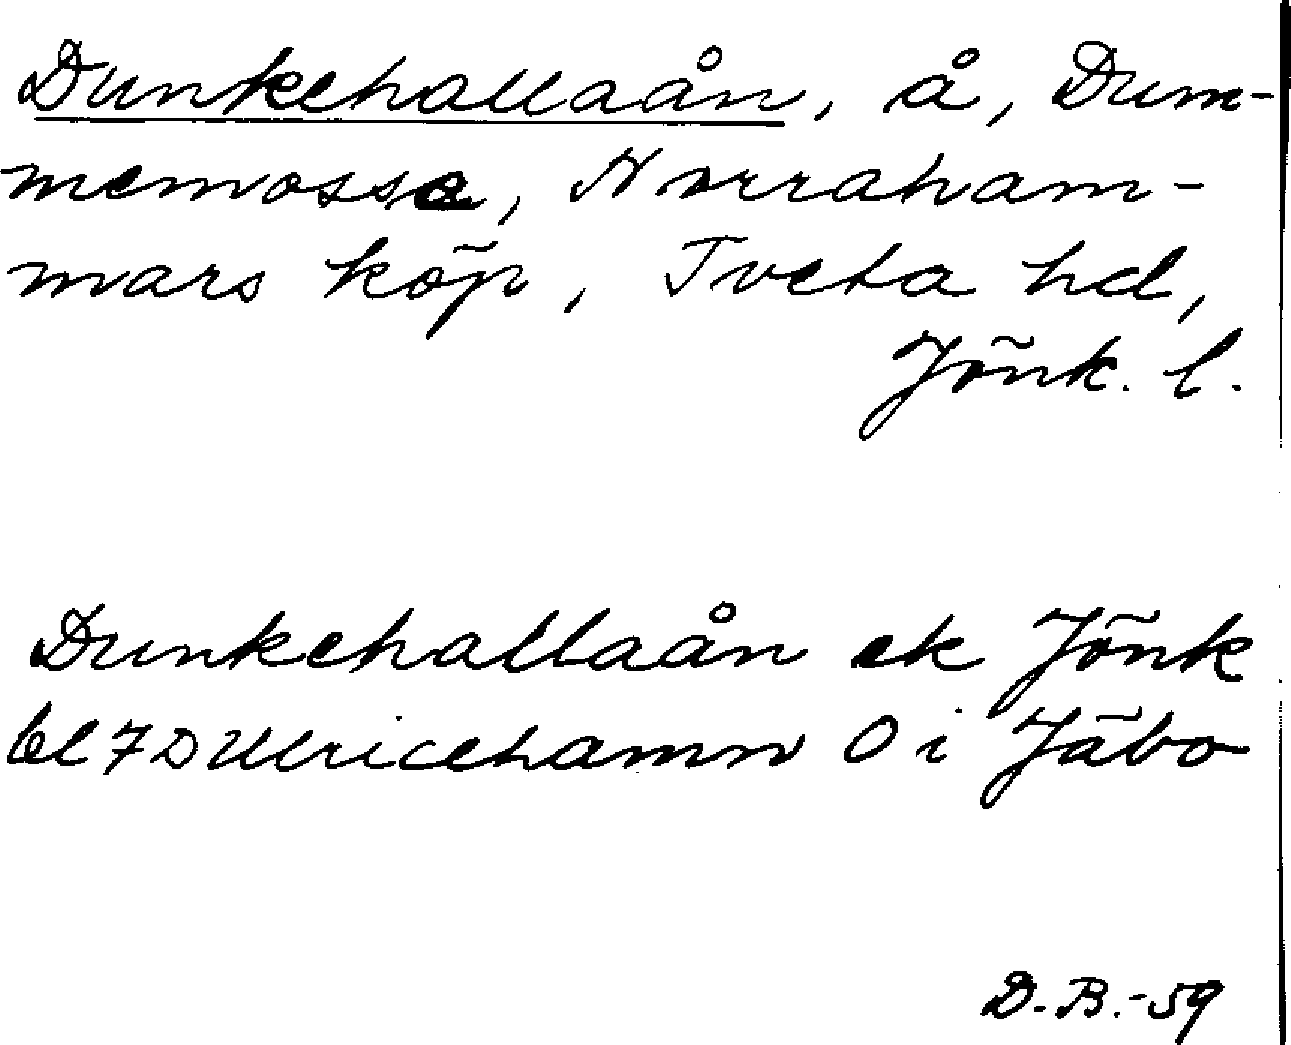 Dunkehallaån, å, Dum-
memosse, Norraham-
mars köp, Tveta hd,
Jönk. l.
Dunkehallaån ek Jönk
bl 7 D Ulricehamn O i Jäbo
D.B.-59